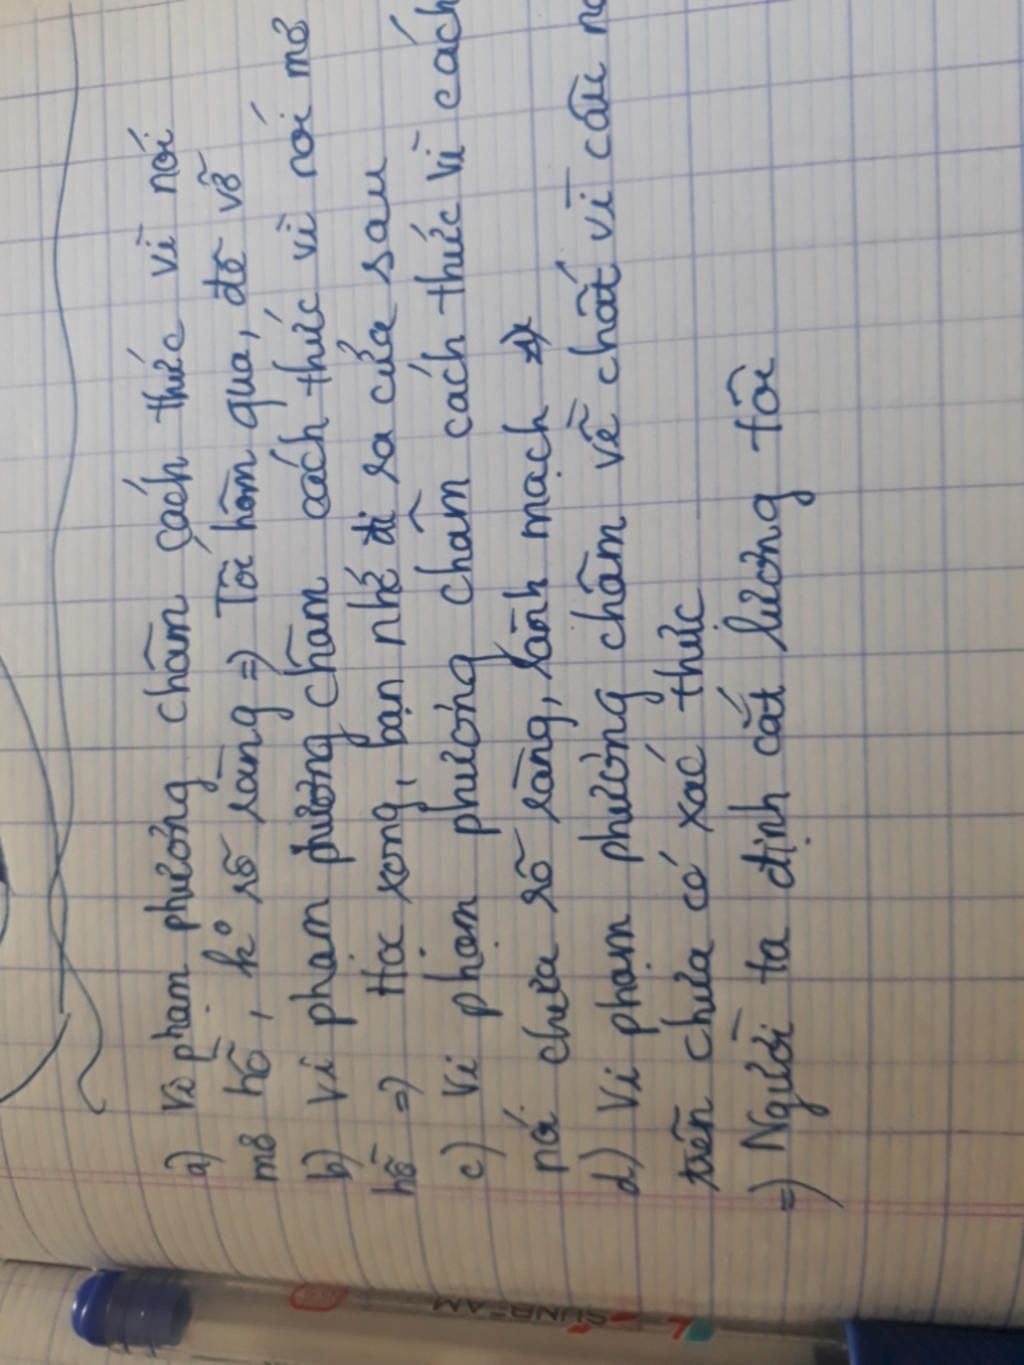 a) Vi phạm phương châm cách thức vì nói
mơ hồ, k° rõ ràng => Tôi hôm qua, đã vỡ
b) Vi phạm phương châm cách thức vì nói mơ
hồ => Học xong, bạn nhớ đi ra cửa sau
c) Vi phạm phương châm cách thức vì cách
nói chưa rõ ràng, rành mạch
d) Vi phạm phương châm về chất vì câu nó
trên chưa có xác thực
=) Người ta định cắt lương tôi
SUNBEAM